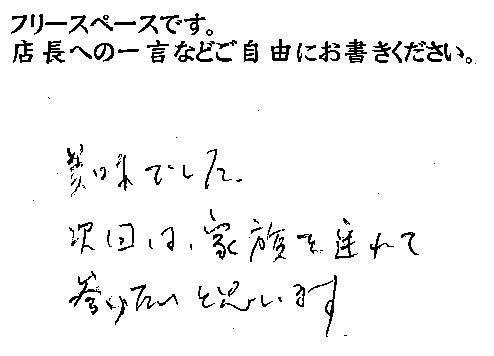 フリースペースです。
店長への一言などご自由にお書きください。
美味でした。
次回は、家族を連れて
参りたいと思います